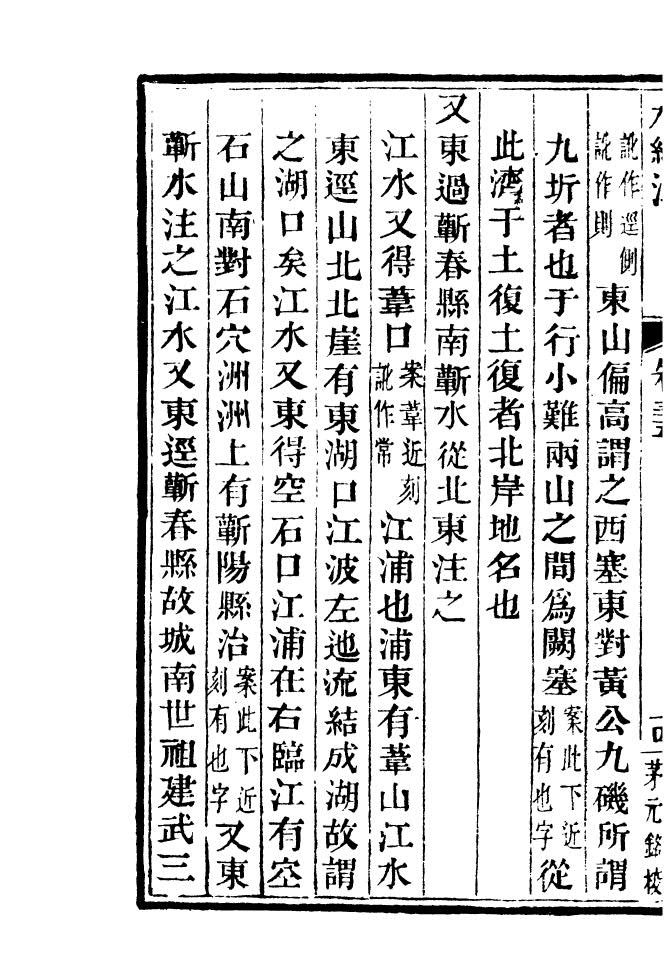 水經注 卷三五 十四 茅元銘校
訛作逕側訛作則東山偏高謂之西塞東對黃公九磯所謂
九圻者也于行小難兩山之間爲闕塞案此下近刻有也字從
此濟于土復土復者北岸地名也
又東過蘄春縣南蘄水從北東注之
江水又得葦口案葦近刻訛作常江浦也浦東有葦山江水
東逕山北北崖有東湖口江波左迆流結成湖故謂
之湖口矣江水又東得空石口江浦在右臨江有空
石山南對石穴洲洲上有蘄陽縣治案此下近刻有也字又東
蘄水注之江水又東逕蘄春縣故城南世祖建武三